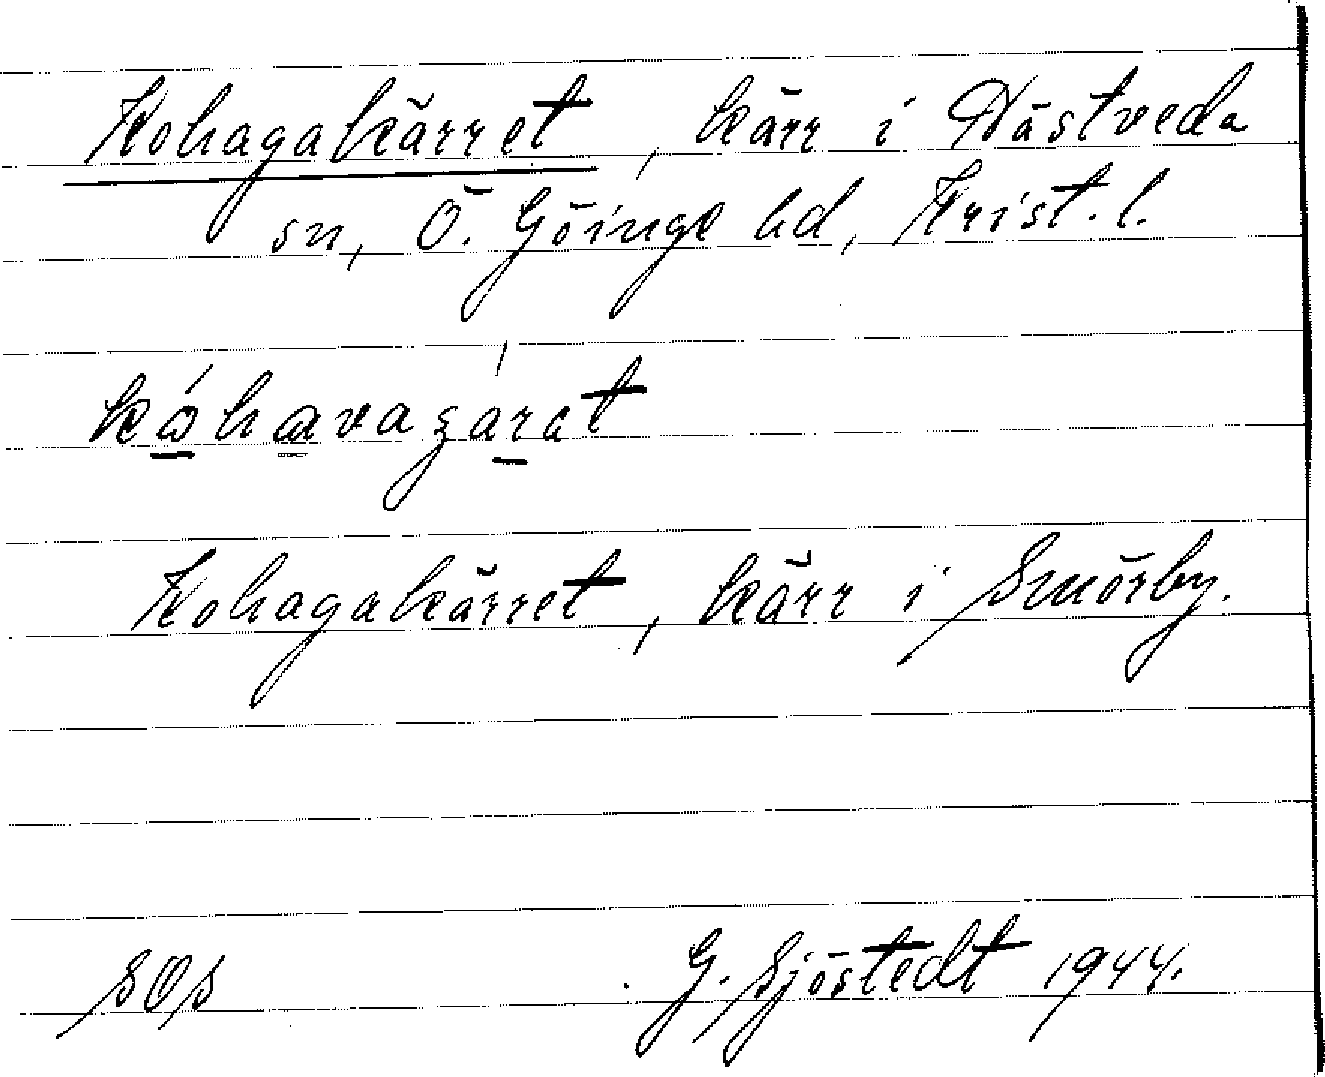 Kohagakärret, kärr i Nästveda
sn, Ö. Göinge hd, Krist. l.
Kohagakärret, kärr i Smörby.
SOS G. Sjöstedt 1944.